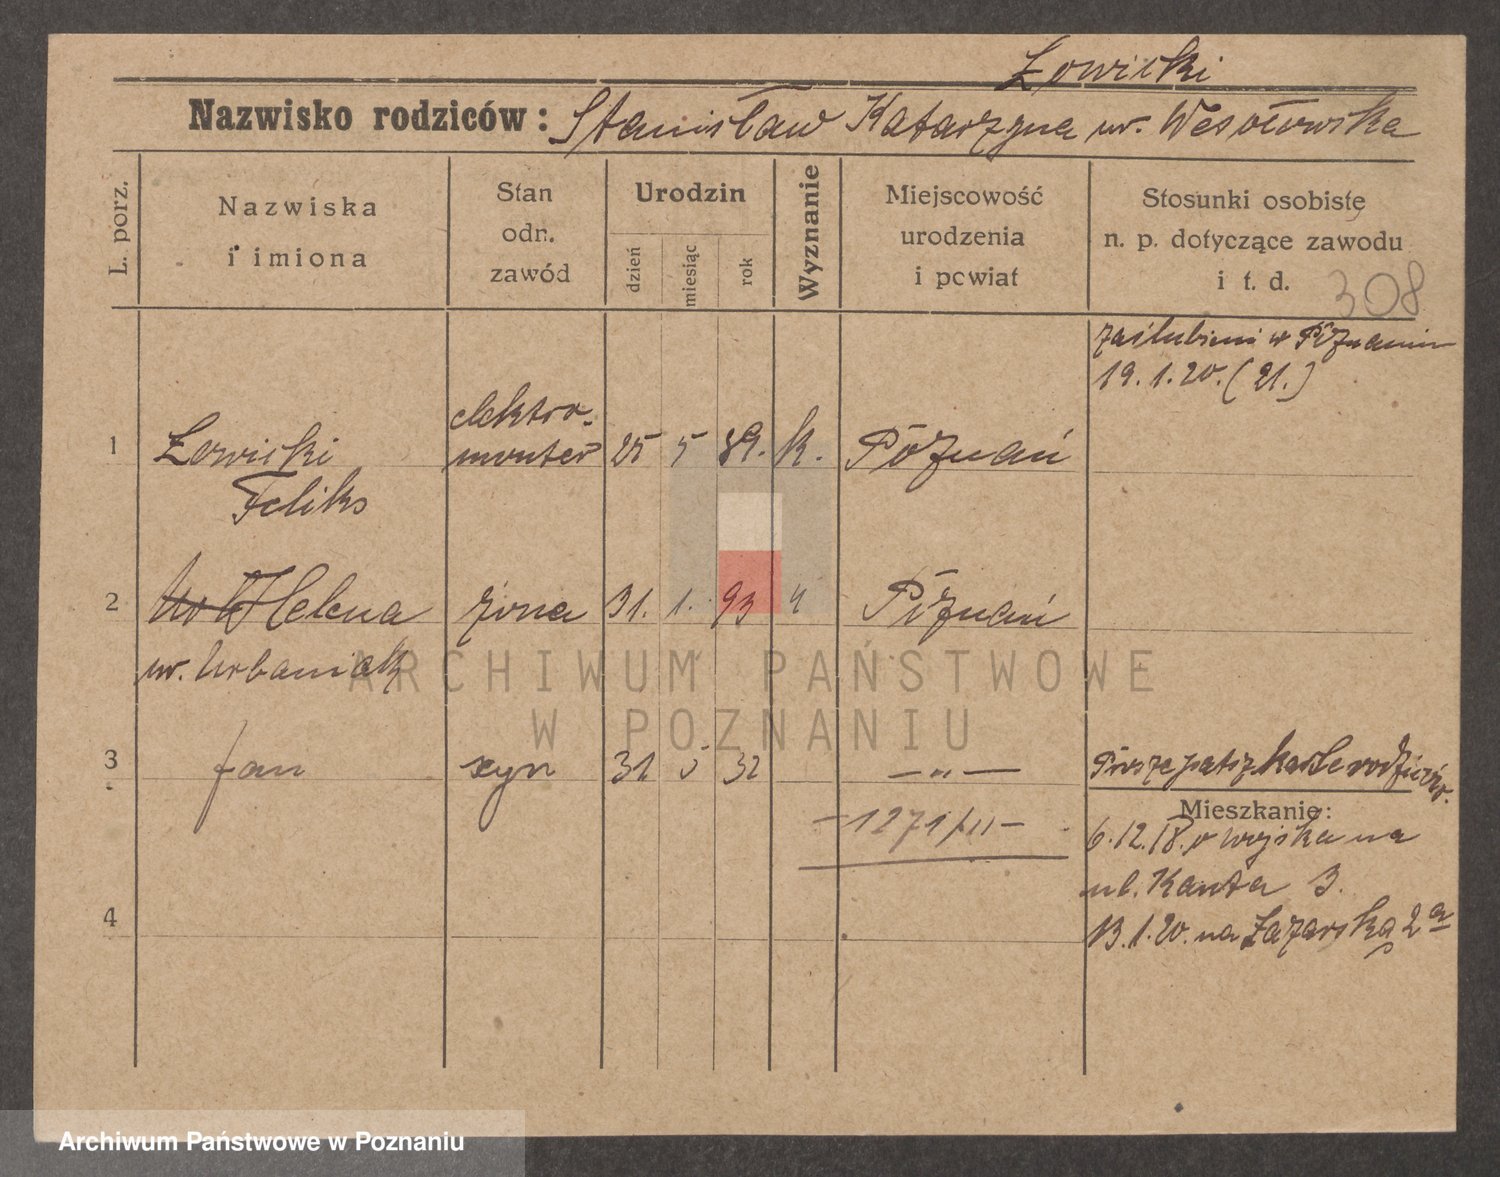 Łowicki
Nazwisko rodziców: Stanisław Katarzyna ur. Wesołowska
L. porz.
Nazwiska
i imiona
Stan
odn.
zawód
Urodzin
dzień
miesiąc
rok
Wyznanie
Miejscowość
urodzenia
i powiat
Stosunki osobiste
n. p. dotyczące zawodu
i t. d.
308
zaślubieni w Poznaniu
19.1.20. (21.)
1 Łowicki elektro-monter 25 5 89. k. Poznań
Feliks
2 Helena żona 31. 1. 93 Poznań
ur. Urbaniak
ARCHIWUM PAŃSTWOWE
W POZNANIU
3 Jan syn 31 5 32 — „ —
kartę rodziców.
Mieszkanie:
—1271/II—
6.12.18. z wojska na
ul. Kanta 3.
4
13.1.20. na Łazarską 2a
Archiwum Państwowe w Poznaniu